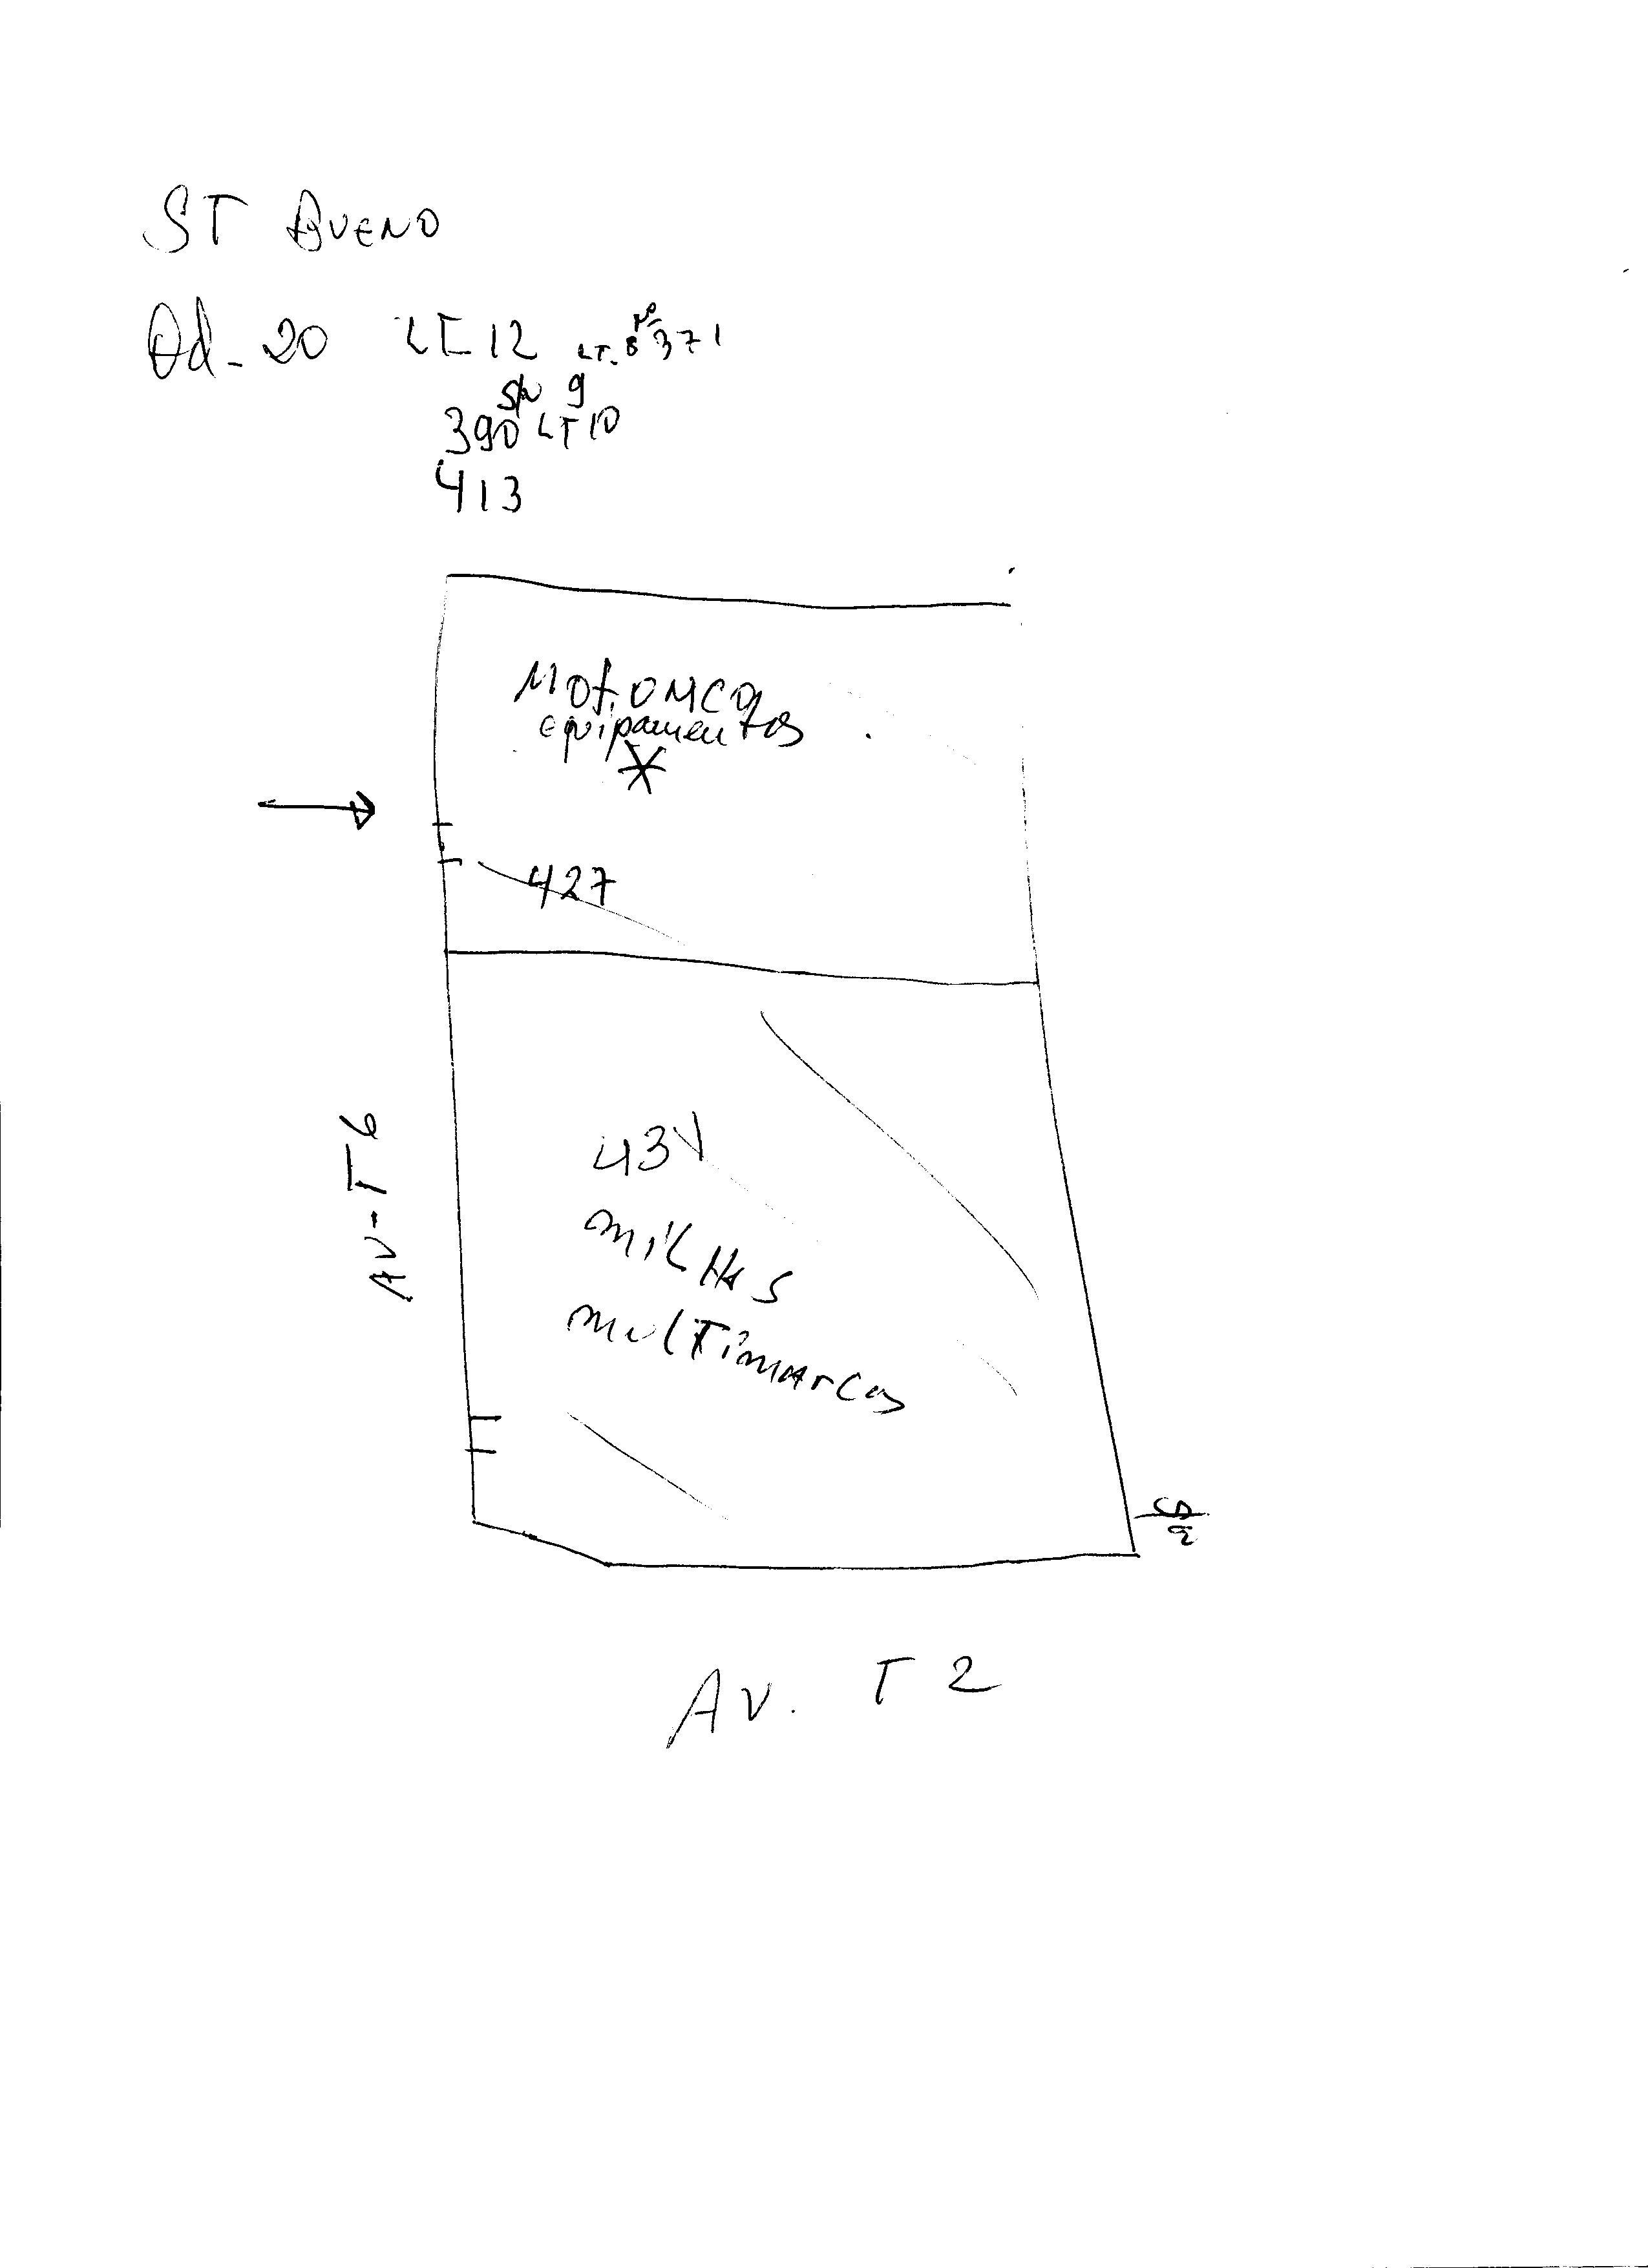 ST BUENO
Qd - 20 LT 12 LT. 8 Nº 371
S/N 9
390 LT 10
413
equipamentos
427
AV - T6
milHas
mulTimarcas
AV. T 2